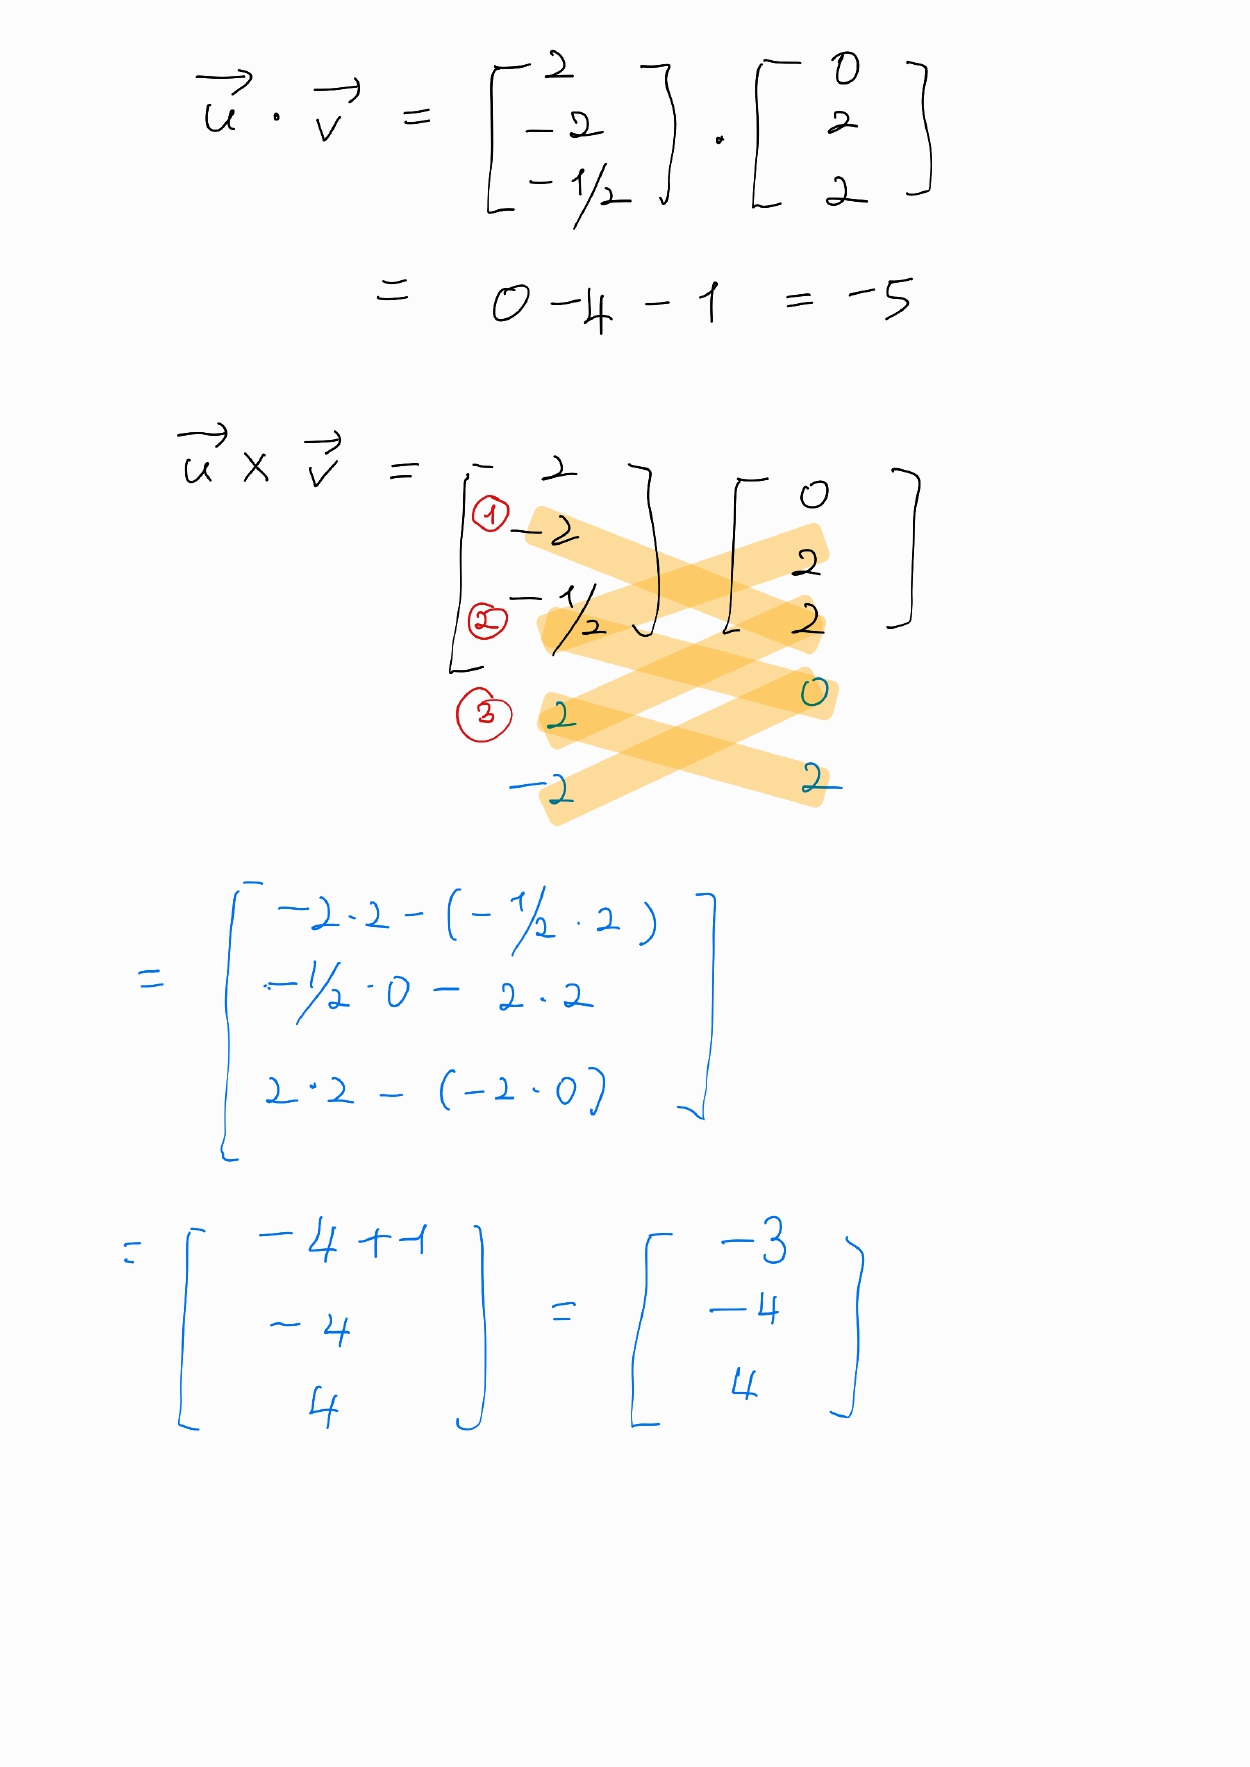 u⃗ · v⃗ = [2 -2 -1/2] · [0 2 2]
= 0 - 4 - 1 = -5
u⃗ × v⃗ = [2 -2 -1/2] [0 2 2]
①
②
③ 2 0
-2 2
= [-2·2 - (-1/2 · 2)
-1/2 · 0 - 2 · 2
2·2 - (-2·0)]
= [-4+1 -4 4] = [-3 -4 4]